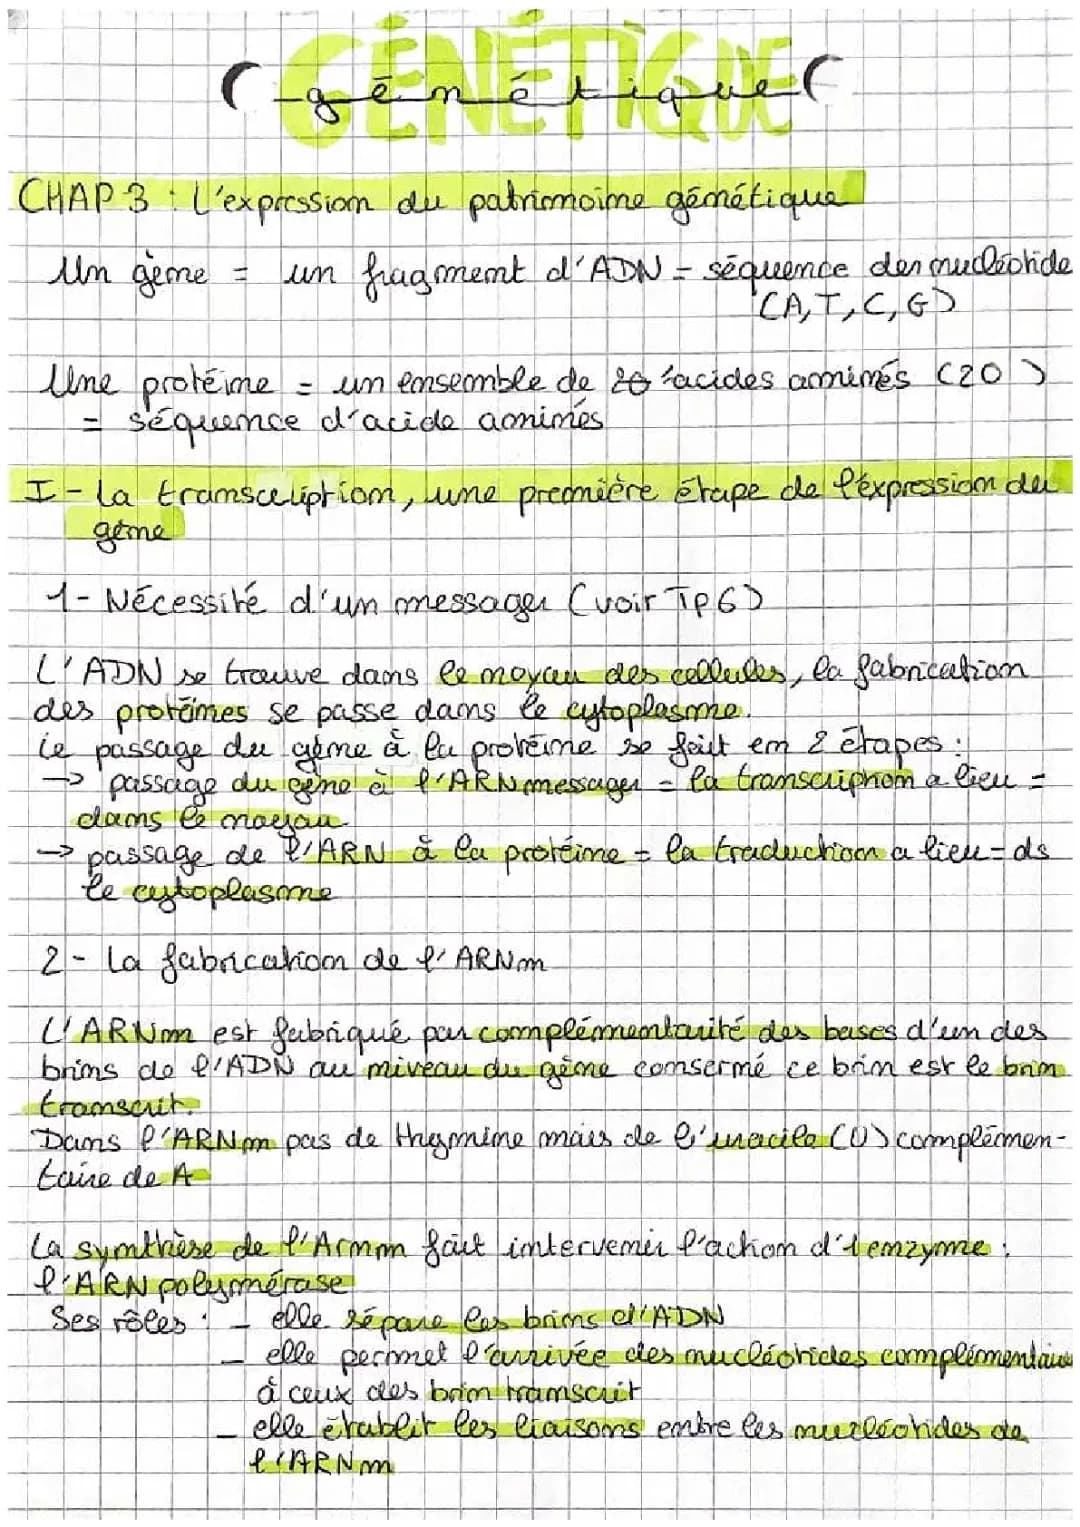 GÉNÉTIQUE
( génétique (
CHAP 3 : L'expression du patrimoine génétique
Un gène = un fragment d'ADN = séquence des nucléotide
(A, T, C, G)
Une protéine = un ensemble de 20 acides aminés (20)
= séquence d'acide aminés
I - La transcription, une première étape de l'expression du
gène
1 - Nécessité d'un messager (voir Tp 6)
L'ADN se trouve dans le noyau des cellules, la fabrication
des protéines se passe dans le cytoplasme.
Le passage du gène à la protéine se fait en 2 étapes :
→ passage du gène à l'ARN messager = la transcription a lieu =
dans le noyau
→ passage de l'ARN à la protéine = la traduction a lieu = ds
le cytoplasme
2 - La fabrication de l'ARNm
L'ARNm est fabriqué par complémentarité des bases d'un des
brins de l'ADN au niveau du gène consermé ce brin est le brin
transcrit.
Dans l'ARNm pas de thymine mais de l'uracile (U) complémen-
taire de A
La synthèse de l'Armm fait intervenir l'action d'1 enzyme :
l'ARN polymérase
Ses rôles : - elle sépare les brins d'ADN
- elle permet l'arrivée des nucléotides complémentaires
à ceux des brin transcrit
- elle établit les liaisons entre les nucléotides de
l'ARNm